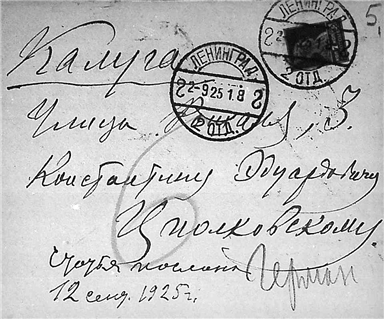 5
ЛЕНИНГРАД
2 ОТД.
Калуга
ЛЕНИНГРАД
2-9 25 1.8
2 ОТД.
Улица 3.
Константину Эдуардовичу
Циолковскому
6
Статья послана
12 сент. 1925 г.
Герман